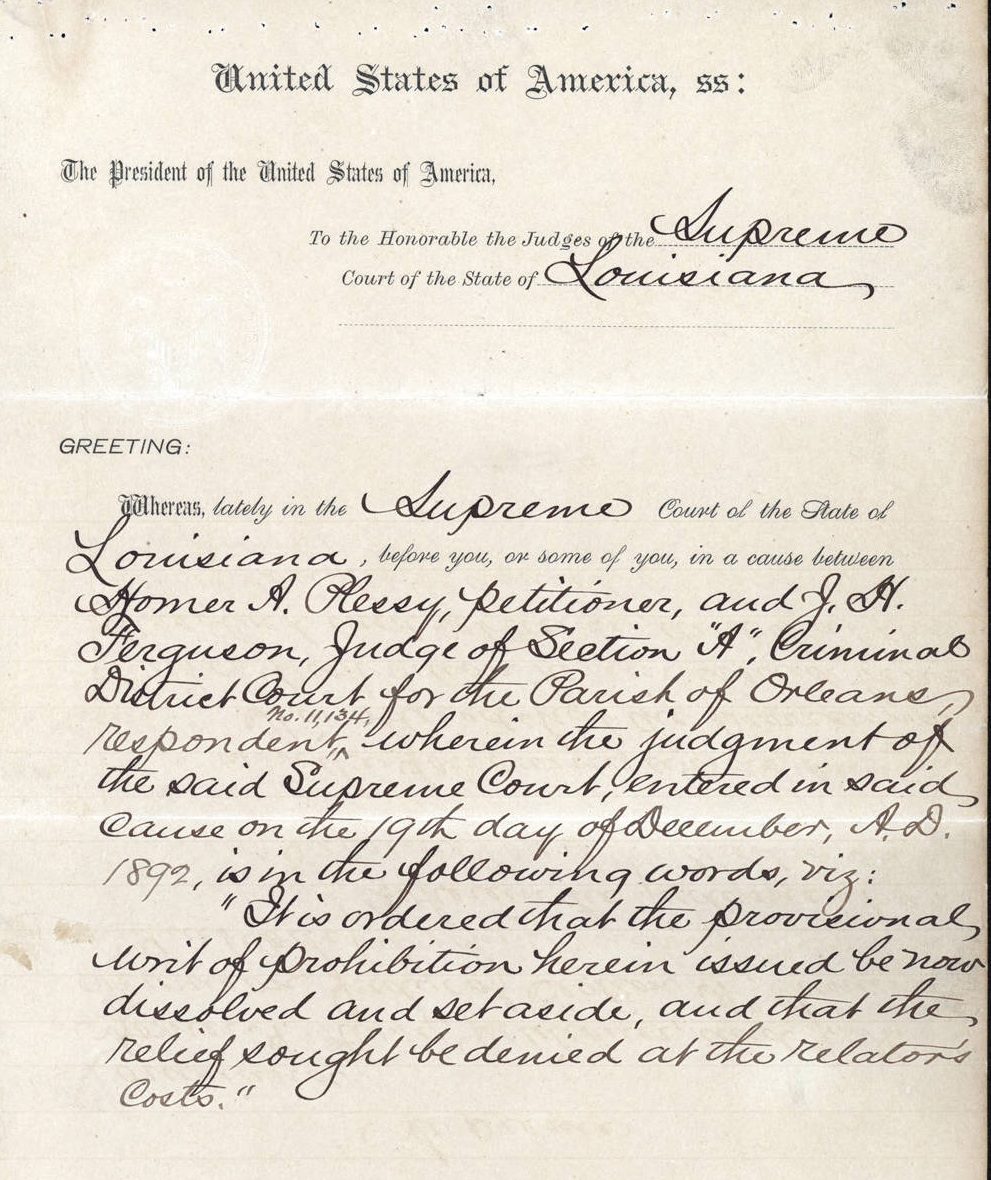 United States of America, ss:
The President of the United States of America,
To the Honorable the Judges of the Supreme
Court of the State of Louisiana
GREETING:
Whereas, lately in the Supreme Court of the State of
Louisiana, before you, or some of you, in a cause between
Homer A. Plessy, petitioner, and J. H.
Ferguson, Judge of Section "A", Criminal
District Court for the Parish of Orleans,
No. 11,134,
respondent, ^ wherein the judgment of
the said Supreme Court, entered in said
cause on the 19th day of December, A.D.
1892, is in the following words, viz:
"It is ordered that the provisional
writ of prohibition herein issued be now
dissolved and set aside, and that the
relief sought be denied at the relator's
costs."